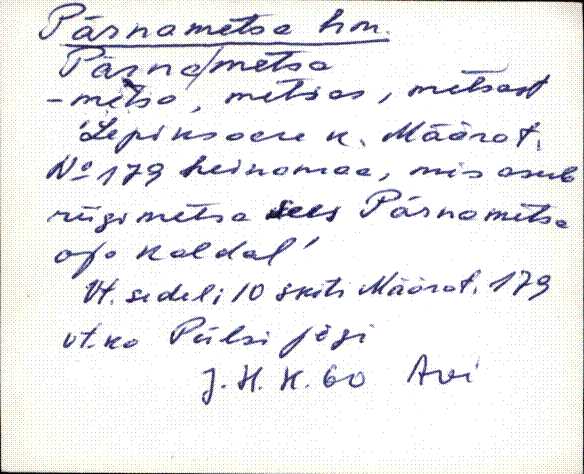 Pärnametsa hm.
Pärna/metsa
-metsa, metsas, metsast
'Lepiksaare k. Määrat.
No 179 heinamaa, mis asub
riigimetsa sees Pärnametsa
oja kaldal'
Vt. sedeli 10 skits Määrat. 179
vt. ka Pülsi jõgi
J. H. K. 60 Avi